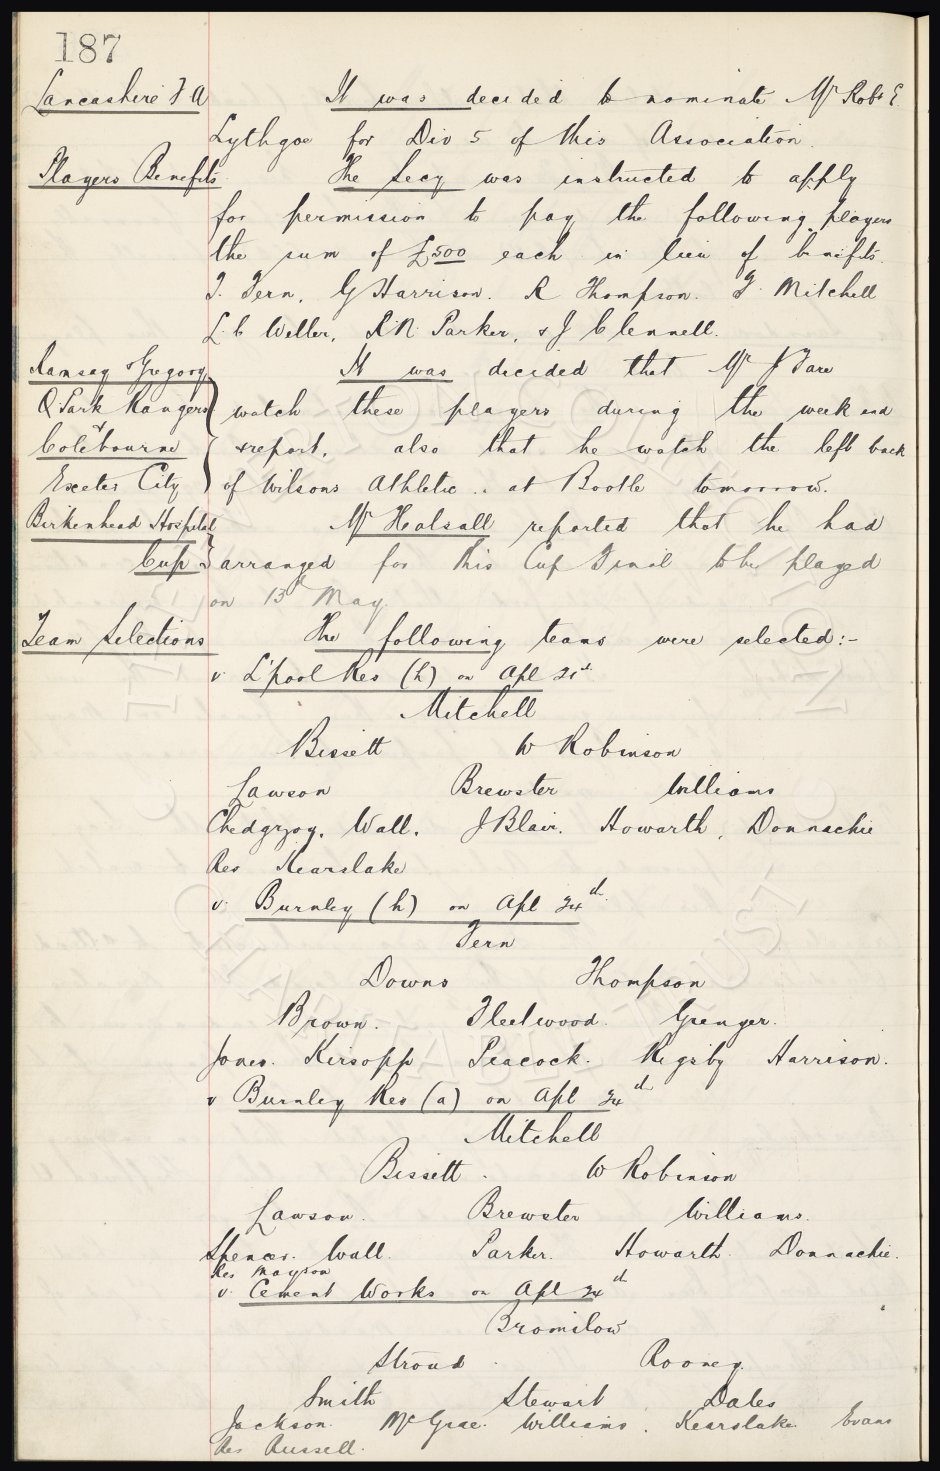 187
Lancashire F A It was decided to nominate Mr Robt E
Lythgoe for Div 5 of this Association.
Players Benefits The Secy was instructed to apply
for permission to pay the following players
the sum of £500 each in lieu of benefits.
T. Fern, G Harrison. R Thompson. F. Mitchell
L. C Weller, R.N. Parker, & J Clennell.
Ramsay & Gregory It was decided that Mr J Fare
Q. Park Rangers watch these players during the week end
& Colebourne & report, also that he watch the left back
Exeter City of Wilsons Athletic .. at Bootle tomorrow.
Birkenhead Hospital Mr Halsall reported that he had
Cup arranged for this Cup Final to be played
on 13th May
Team Selections The following teams were selected:-
v. L'pool Res (h) on Apl 21st
Mitchell
Bissett W Robinson
Lawson Brewster Williams
Chedgzoy, Wall, J Blair. Howarth, Donnachie
Res Kearslake
v. Burnley (h) on Apl 24th
Fern
Downs Thompson
Brown. Fleetwood. Grenyer.
Jones. Kirsopp Peacock. Rigsby Harrison.
v Burnley Res (a) on Apl 24th
Mitchell
Bissett. W Robinson
Lawson. Brewster Williams.
Spencer. Wall. Parker. Howarth. Donnachie.
Res Mayson
v. Cement Works on Apl 24th
Bromilow
Stroud. Rooney.
Smith Stewart Dales
Jackson. McGrae. Williams. Kearslake Evans
Res Russell.